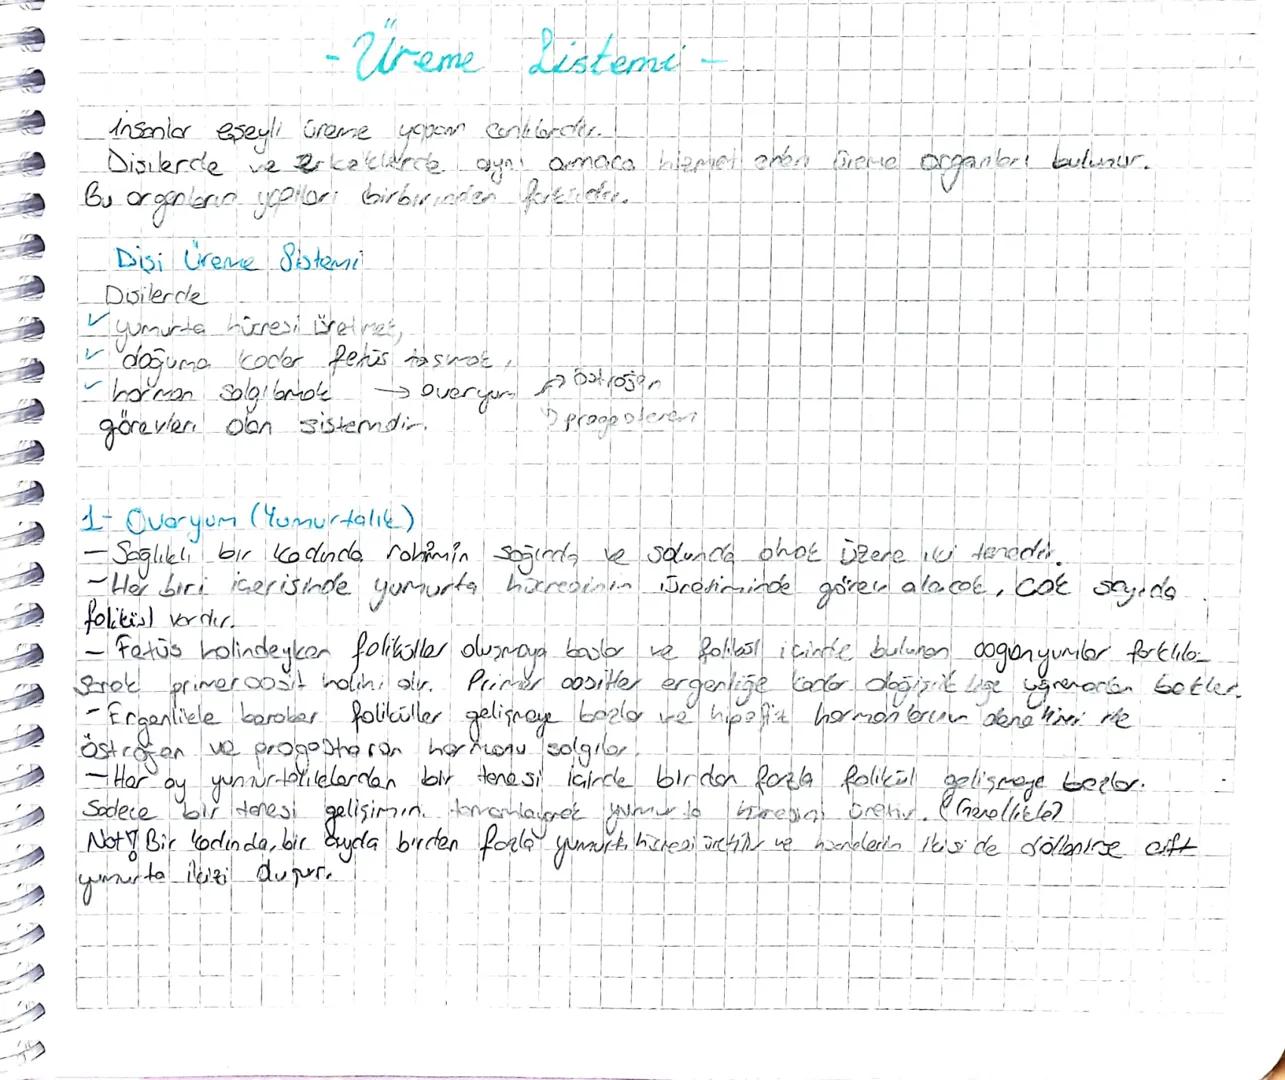 - Üreme Sistemi -
İnsanlar eşeyli üreme yapan canlılardır.
Dişilerde ve Erkeklerde aynı amaca hizmet eden üreme organları bulunur.
Bu organların yapıları birbirinden farklıdır.
Dişi Üreme Sistemi
Dişilerde
✓ yumurta hücresi üretmek,
✓ doğuma kadar fetüs taşımak,
✓ hormon salgılamak → Overyum → östrojen
→ progesteron
görevleri olan sistemdir.
1- Ovaryum (Yumurtalık)
- Sağlıklı bir kadında rahimin sağında ve solunda olmak üzere iki tanedir.
- Her biri içerisinde yumurta hücresinin üretiminde görev alacak, çok sayıda
folikül vardır.
- Fetüs halindeyken foliküller oluşmaya başlar ve folikül içinde bulunan oogonyumlar farklıla-
şarak primer oosit halini alır. Primer oositler ergenliğe kadar değişikliğe uğramadan bekler.
- Ergenlikle beraber foliküller gelişmeye başlar ve hipofiz hormonlarının denetimi ile
östrojen ve progesteron hormonu salgılar.
- Her ay yumurtalıklardan bir tanesi içinde birden fazla folikül gelişmeye başlar.
Sadece bir tanesi gelişimini tamamlayarak yumurta hücresini üretir. (Genellikle)
Not! Bir kadında, bir ayda birden fazla yumurta hücresi üretilir ve hücrelerin ikisi de döllenirse çift
yumurta ikizi oluşur.